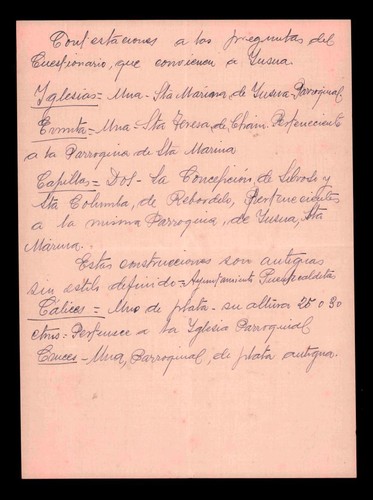 Contestaciones a las preguntas del
Cuestionario, que convienen a Insua.
Yglesias = Una - Sta Marina, de Insua - Parroquial
Ermita = Una = Sta Teresa, de Chain. Perteneciente
a la Parroquia de Sta Marina
Capillas = Dos - la Concepción, de y
Sta Columba, de Rebordelo, Pertenecientes
a la misma Parroquia, de Insua, Sta
Marina.
Estas construcciones son antiguas
sin estilo definido = Ayuntamiento Puentecaldelas
Cálices = Uno de plata - su altura 25 o 30
ctms = Pertenece a la Iglesia Parroquial
Cruces - Una, Parroquial, de plata antigua.